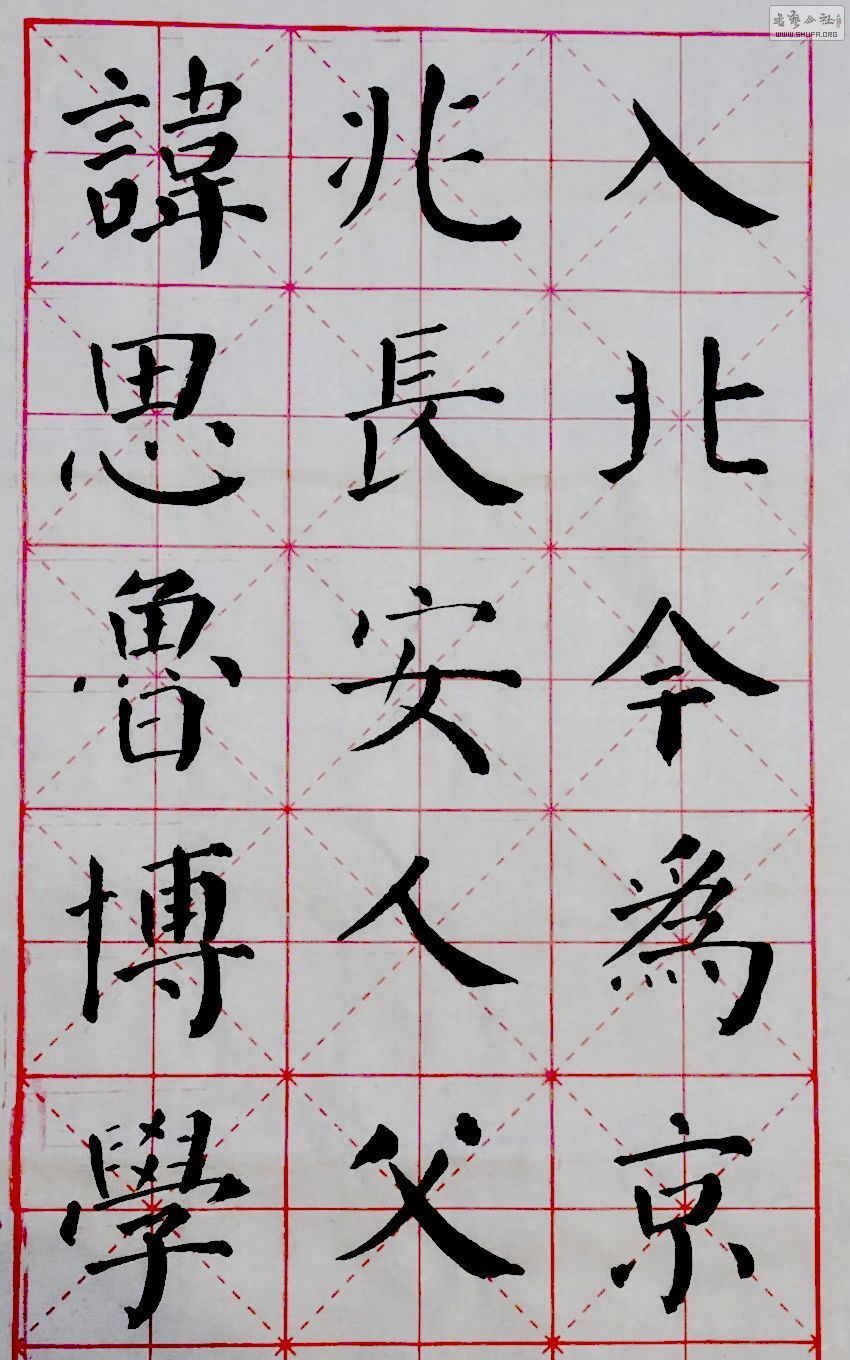 入北今為京
兆長安人父
諱思魯博學
WWW.SHUFA.ORG